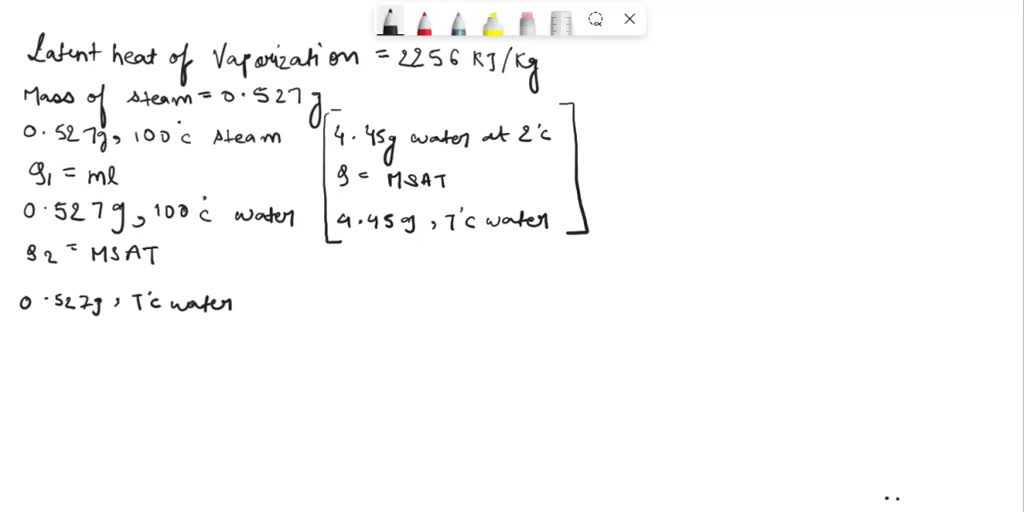 Latent heat of Vaporization = 2256 KJ/Kg
Mass of steam = 0.527g
0.527g, 100°c steam
q1 = ml
0.527g, 100°c water
q2 = MSΔT
0.527g, T°c water
4.45g water at 2°c
q = MSΔT
4.45g, T°c water